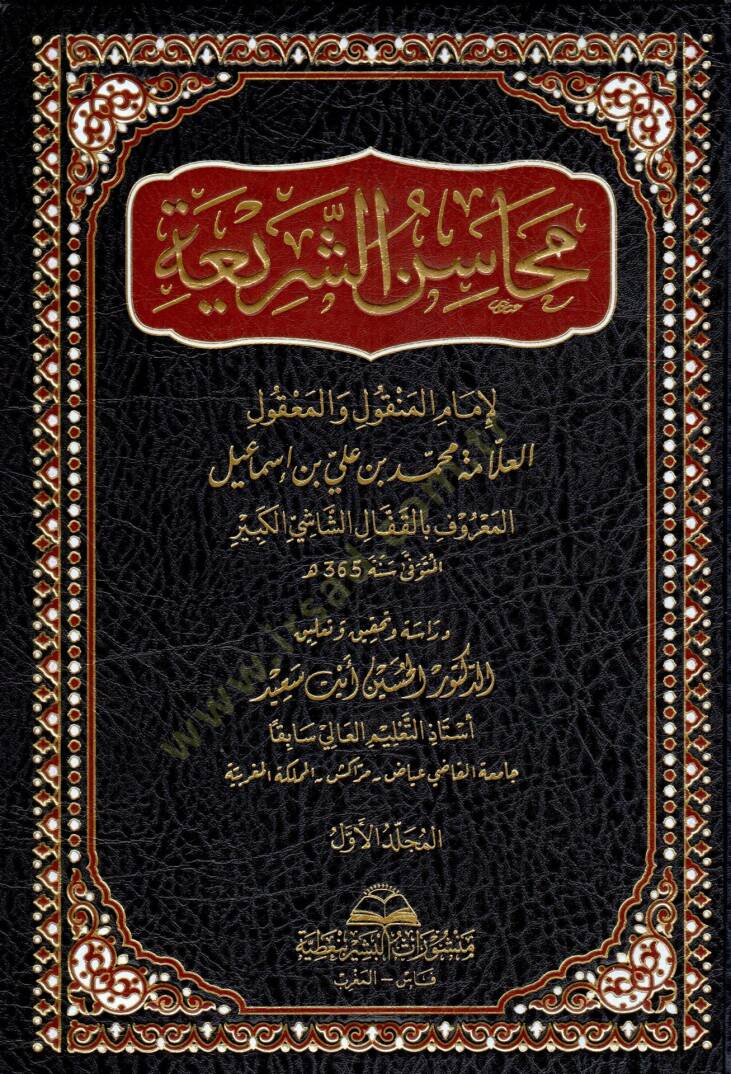 مَحَاسِنُ الشَّرِيعَةِ
لِإِمَامِ المَنْقُولِ وَالمَعْقُولِ
العلّامة محمّد بن علي بن إسماعيل
المَعْرُوفِ بِالقَفَّالِ الشَّاشِيِّ الكَبِيرِ
المُتَوَفَّى سَنَةَ 365 هـ
دراسة وتحقيق وتعليق
الدكتور الحُسَين أيت سَعِيد
أُسْتَاذِ التَّعْلِيمِ العَالِي سَابِقًا
جامعة القاضي عياض - مرّاكش - المملكة المغربيّة
المُجَلَّدُ الأَوَّلُ
مَنْشُورَاتُ البَشِير بنعَطِيَّة
فَاس - المَغْرِب